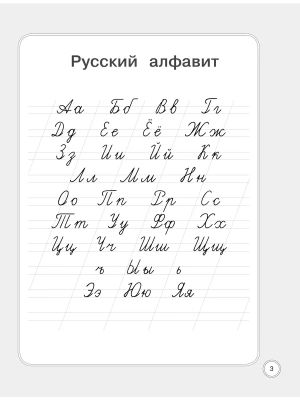 Русский алфавит
Аа Бб Вв Гг
Дд Ее Ёё Жж
Зз Ии Йй Кк
Лл Мм Нн
Оо Пп Рр Сс
Тт Уу Фф Хх
Цц Чч Шш Щщ
ъ Ыы ь
Ээ Юю Яя
3